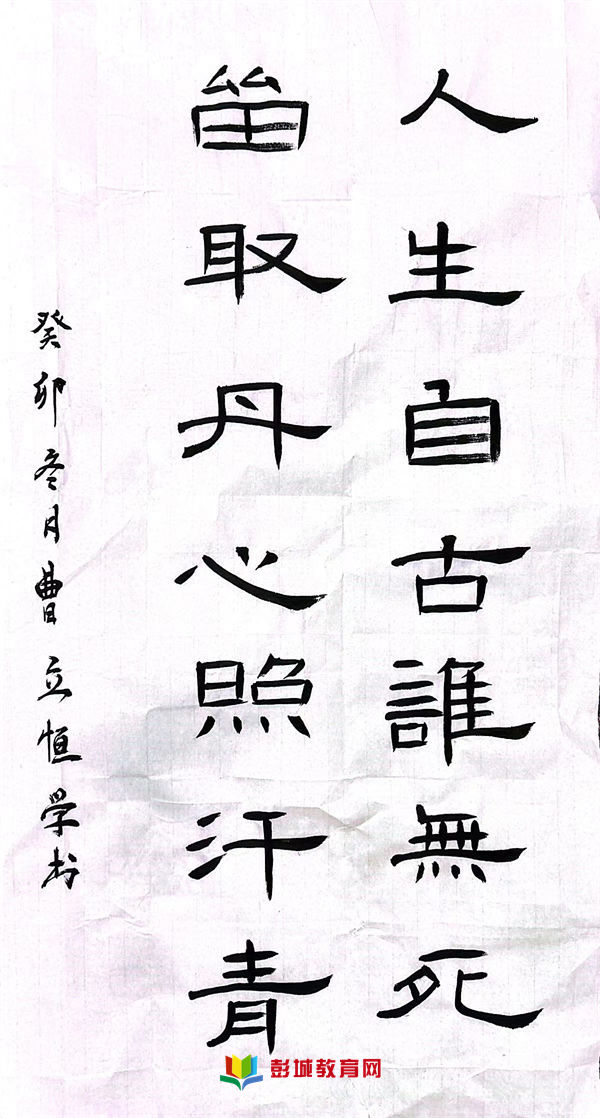 人生自古誰無死
留取丹心照汗青
癸卯冬月曹立恒学书
彭城教育网